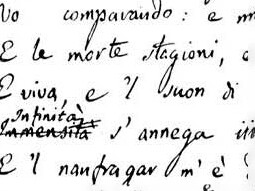 Vo comparando: e
E le morte stagioni, e
E viva, e 'l suon di
Infinità
Immensità s' annega
E 'l naufragar m' è